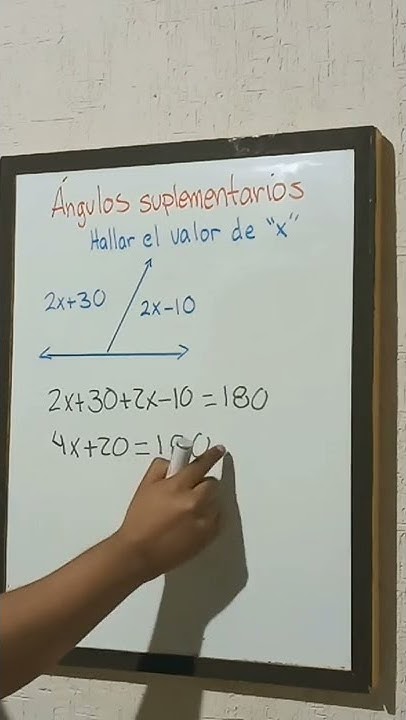 Ángulos suplementarios
Hallar el valor de "x"
2x+30
2x-10
2x+30+2x-10=180
4x+20=180